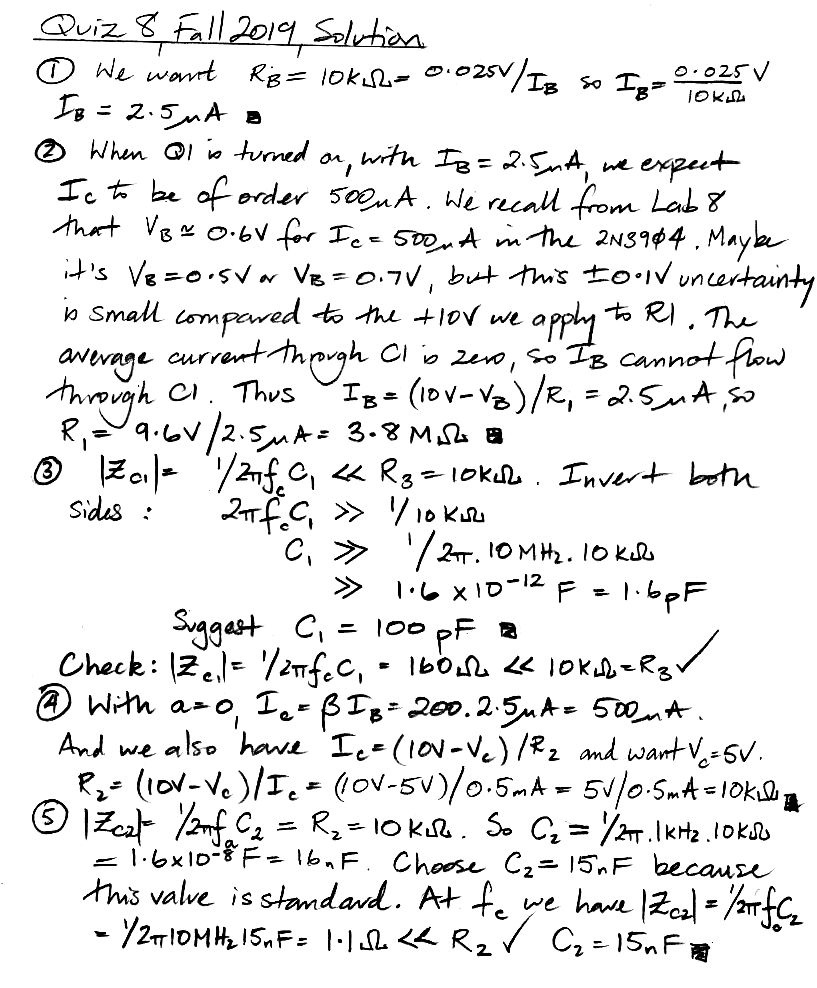 Quiz 8, Fall 2019, Solution
① We want RB = 10kΩ = 0.025V/IB so IB = 0.025V/10kΩ
IB = 2.5μA
② When Q1 is turned on, with IB = 2.5μA, we expect
Ic to be of order 500μA. We recall from Lab 8
that VB ≃ 0.6V for Ic = 500μA in the 2N3904. Maybe
it's VB = 0.5V or VB = 0.7V, but this ±0.1V uncertainty
is small compared to the +10V we apply to R1. The
average current through C1 is zero, so IB cannot flow
through C1. Thus IB = (10V-VB)/R1 = 2.5μA, so
R1 = 9.6V/2.5μA = 3.8 MΩ
③ |Zc1| = 1/2πfcC1 << R3 = 10kΩ. Invert both
sides: 2πfcC1 >> 1/10kΩ
C1 >> 1/2π.10MHz.10kΩ
>> 1.6 x 10^-12 F = 1.6pF
Suggest C1 = 100pF
Check: |Zc1| = 1/2πfcC1 = 160Ω << 10kΩ = R3 ✓
④ With a=0, Ic = βIB = 200.2.5μA = 500μA.
And we also have Ic = (10V-Vc)/R2 and want Vc=5V.
R2 = (10V-Vc)/Ic = (10V-5V)/0.5mA = 5V/0.5mA = 10kΩ
⑤ |Zc2| = 1/2πfaC2 = R2 = 10kΩ. So C2 = 1/2π.1kHz.10kΩ
= 1.6x10^-8 F = 16nF. Choose C2 = 15nF because
this value is standard. At fc we have |Zc2| = 1/2πfcC2
= 1/2π10MHz15nF = 1.1Ω << R2 ✓ C2 = 15nF